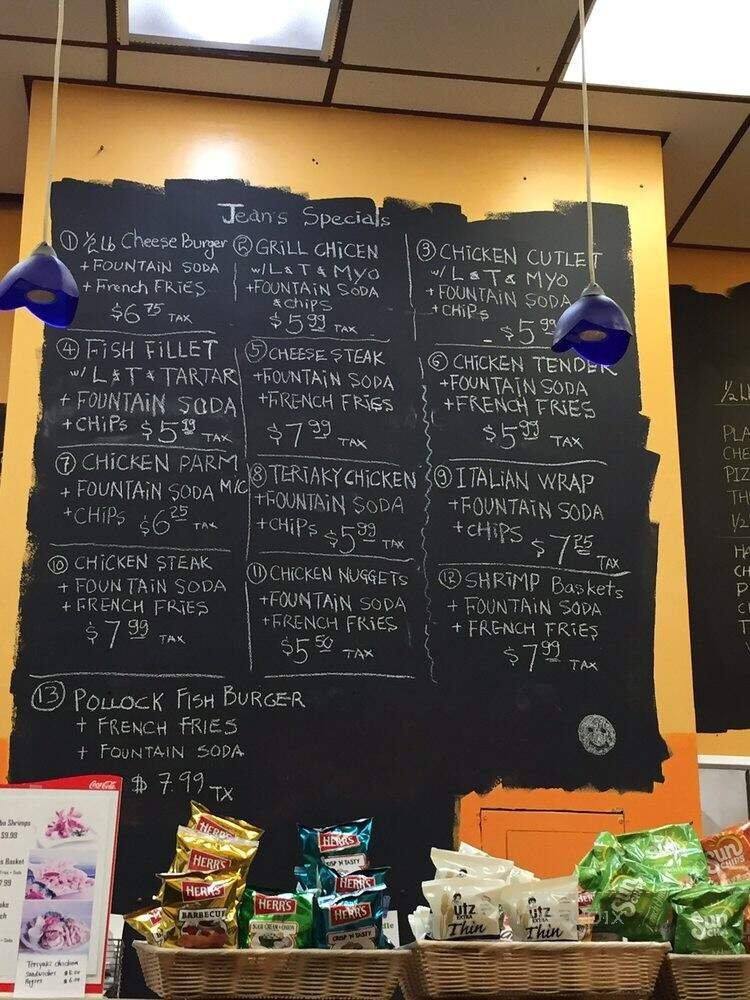 Jean's Specials
① ½ Lb Cheese Burger
+ FOUNTAIN SODA
+ French FRIES
$6.75 TAX
② GRILL CHICEN
w/ L & T & MYO
+FOUNTAIN SODA
& CHIPS
$5.99 TAX
③ CHICKEN CUTLET
w/ L & T & MYO
+ FOUNTAIN SODA
+ CHIPS
$5.99
④ FISH FILLET
w/ L & T & TARTAR
+ FOUNTAIN SODA
+ CHIPS $5.99 TAX
⑤ CHEESE STEAK
+FOUNTAIN SODA
+FRENCH FRIES
$7.99 TAX
⑥ CHICKEN TENDER
+FOUNTAIN SODA
+FRENCH FRIES
$5.99 TAX
⑦ CHICKEN PARM
+ FOUNTAIN SODA M/C
+CHIPS $6.25 TAX
⑧ TERIAKY CHICKEN
+ FOUNTAIN SODA
+CHIPS $5.99 TAX
⑨ ITALIAN WRAP
+FOUNTAIN SODA
+ CHIPS $7.25 TAX
⑩ CHICKEN STEAK
+ FOUNTAIN SODA
+ FRENCH FRIES
$7.99 TAX
⑪ CHICKEN NUGGETS
+FOUNTAIN SODA
+FRENCH FRIES
$5.50 TAX
⑫ SHRIMP Baskets
+ FOUNTAIN SODA
+ FRENCH FRIES
$7.99 TAX
⑬ POLLOCK FISH BURGER
+ FRENCH FRIES
+ FOUNTAIN SODA
$7.99 TX
Coca-Cola
Shrimps
$9.99
Basket
Teriyaki chicken
Sandwiches
HERR'S
HERR'S
HERR'S
BARBECUE
HERR'S
SOUR CREAM & ONION
HERR'S
CRISP 'N TASTY
HERR'S
HERR'S
CRISP 'N TASTY
utz
EXTRA
Thin
utz
EXTRA
Thin
Sun
Sun
Sun
Sun
CHIPS